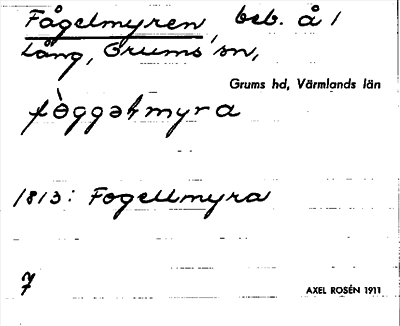 Fågelmyren, beb. å 1
Lång, Grums sn,
Grums hd, Värmlands län
fòggəɫmyra
1813: Fogellmyra
7
AXEL ROSÉN 1911